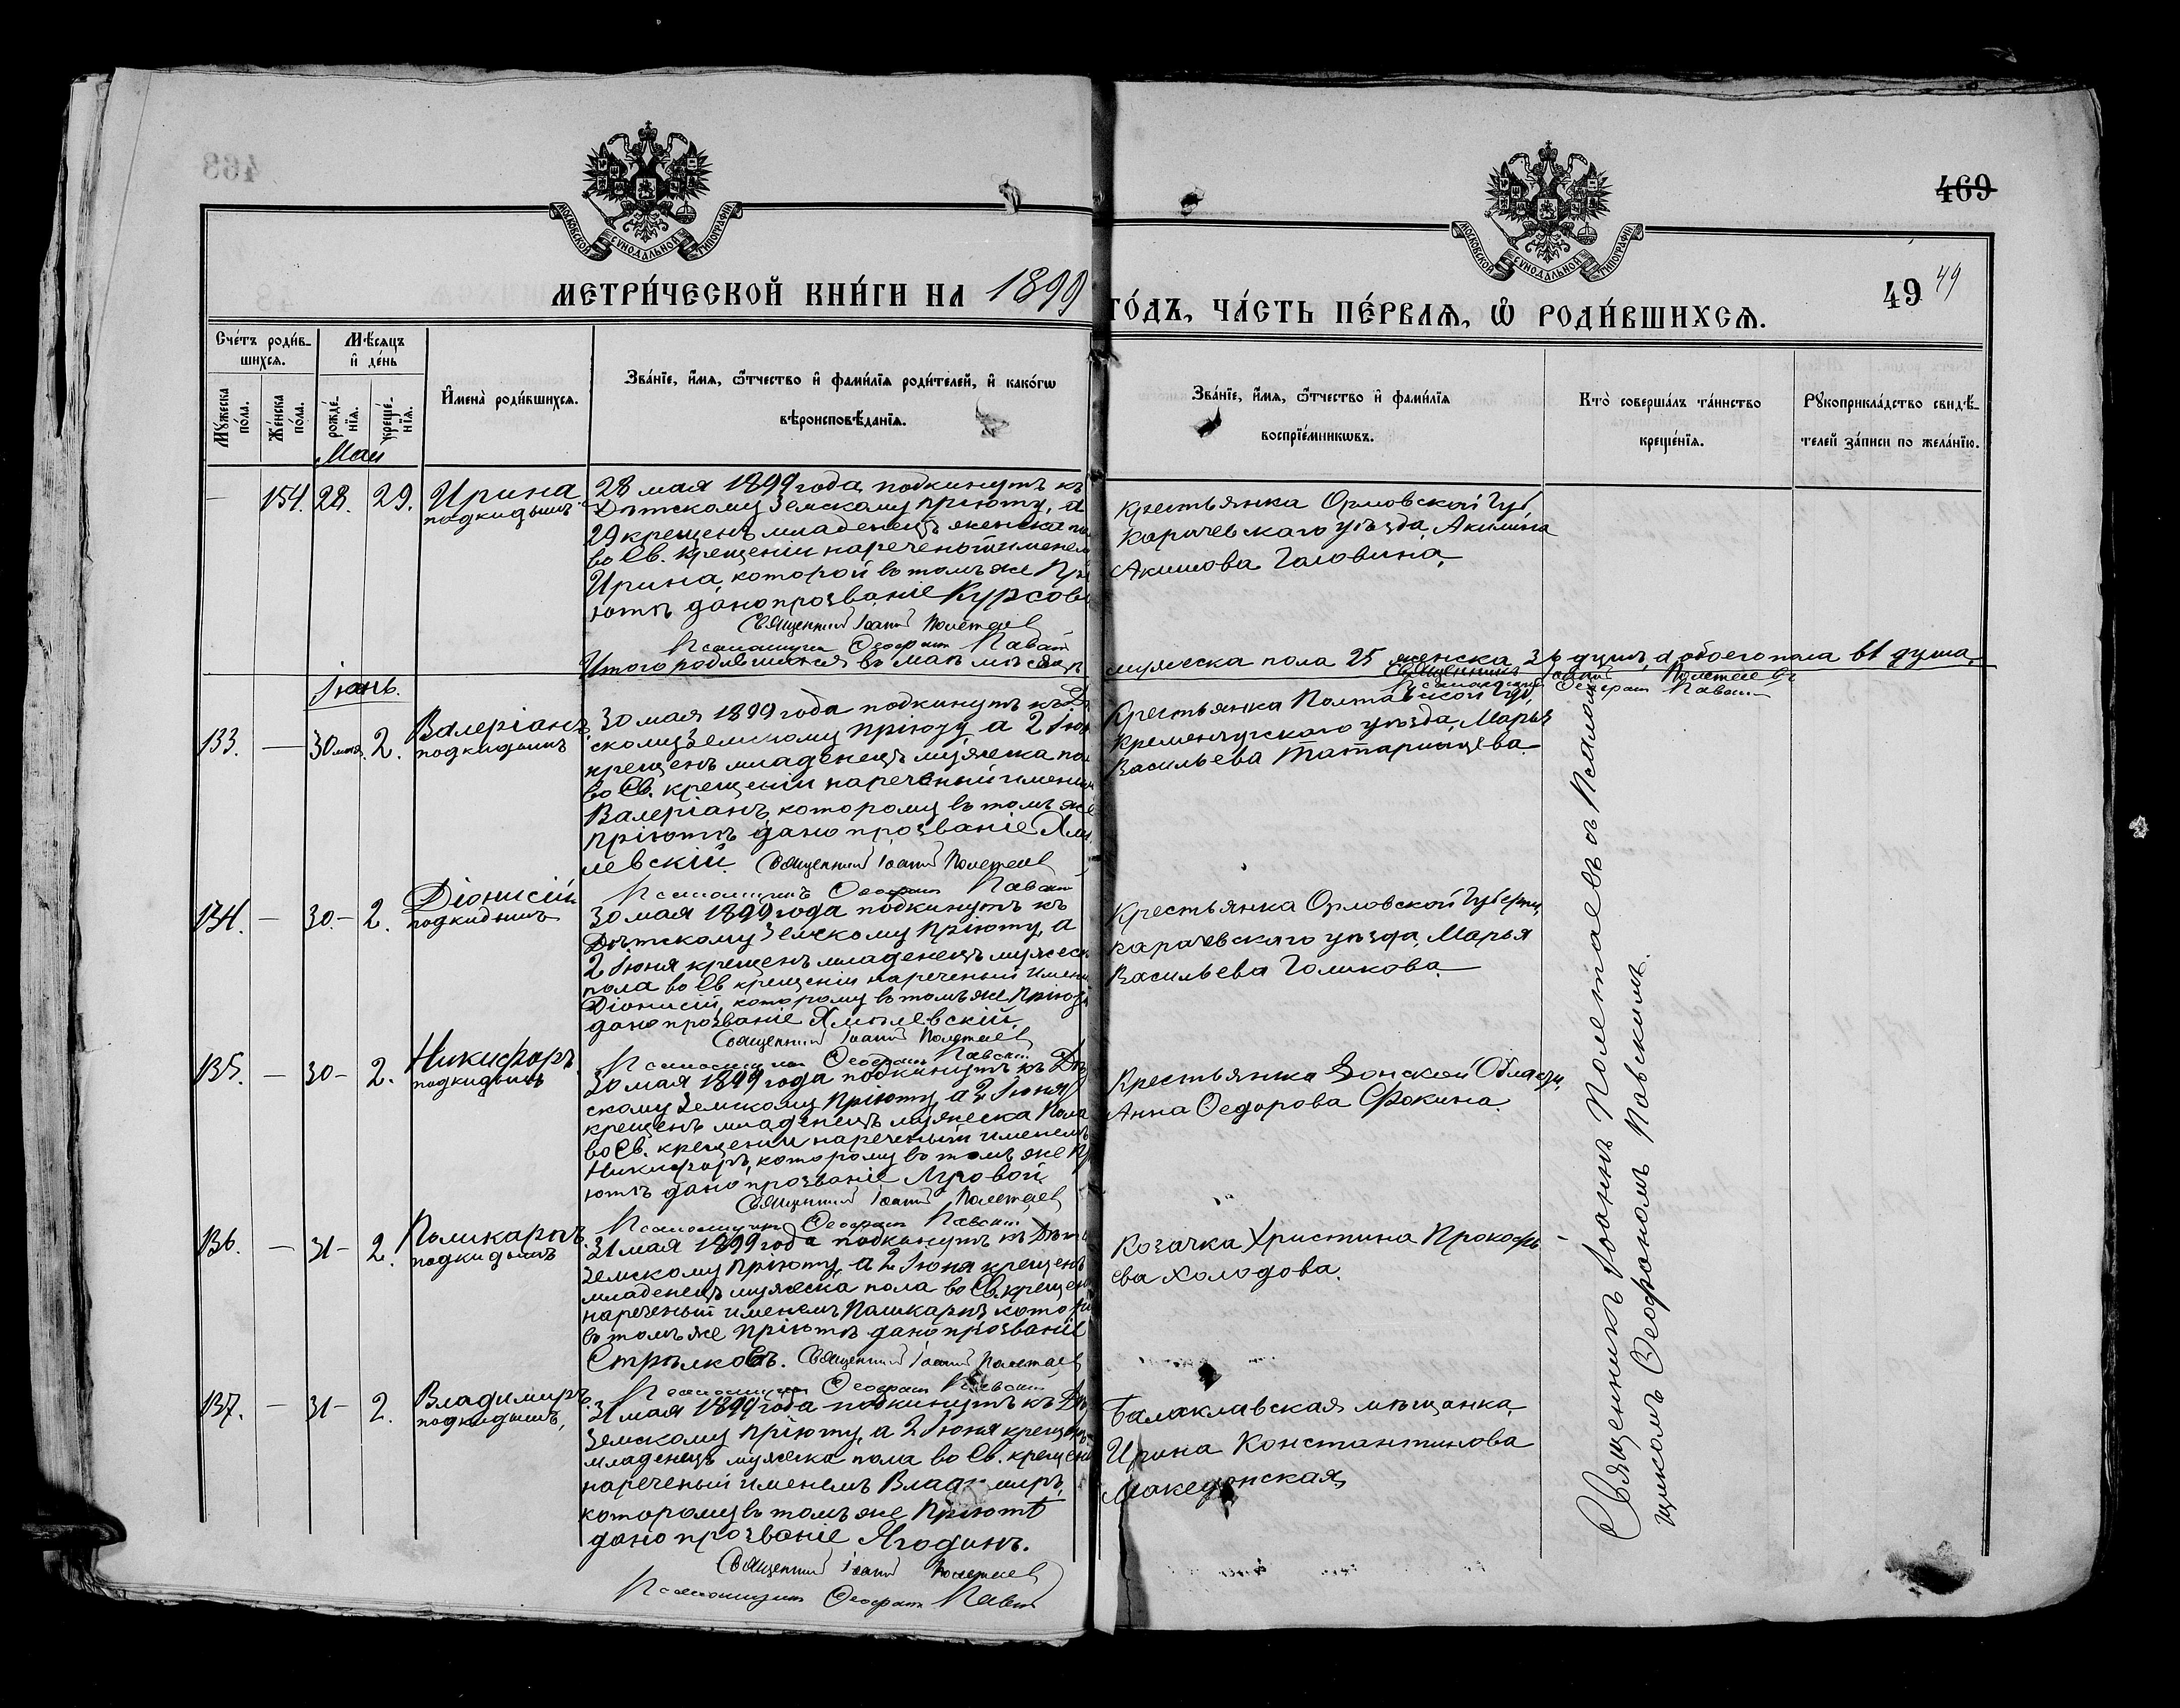 469
МОСКОВСКОЙ СѴНОДАЛЬНОЙ ТИПОГРАФІИ
МОСКОВСКОЙ СѴНОДАЛЬНОЙ ТИПОГРАФІИ
МЕТРИ́ЧЕСКОЙ КНИ́ГИ НА 1899
ГО́ДЪ, ЧА́СТЬ ПЕ́РВАѦ, Ѡ РОДИ́ВШИХСѦ.
49 49
Сче́тъ роди́в-
шихсѧ.
Мѣ́сѧцъ
и҆ де́нь
Мꙋ́жеска
по́ла.
Же́нска
по́ла.
рожде́-
нїѧ.
креще́-
нїѧ.
И҆мена̀ роди́вшихсѧ.
Зва́нїе, и҆́мѧ, ѻ҆́тчество и҆ фами́лїѧ роди́телей, и҆ како́гѡ
вѣроисповѣ́данїѧ.
Зва́нїе, и҆́мѧ, ѻ҆́тчество и҆ фами́лїѧ
воспрїе́мникѡвъ.
Кто̀ соверша́лъ та́инство
креще́нїѧ.
Рꙋкоприкла́дство свидѣ́-
телей за́писи по жела́нїю.
Май
— 154. 28. 29. Ирина
подкидышъ
28 мая 1899 года подкинутъ къ
Дѣтскому Земскому Пріюту, а
29 крещенъ младенецъ женска по
во Св. крещеніи нареченый именем
Ирина, которой въ томъ же Прі
ютѣ дано прозваніе Курсов
Священникъ Іоаннъ Полетаев
Псаломщикъ Ѳеофанъ Павскій
Крестьянка Орловской Губ.
Карачевскаго уѣзда, Акилина
Акимова Головина.
Итого родившихся въ маѣ мѣсяцѣ
мужеска пола 25 женска 36 душъ, а обоего пола 61 душа.
Священникъ Іоаннъ Полетаевъ
Псаломщикъ Ѳеофанъ Павскій
Іюнь.
133. — 30 мая. 2. Валеріанъ
подкидышъ
30 мая 1899 года подкинутъ къ Дѣ
скому Земскому Пріюту, а 2 Іюн
крещенъ младенецъ мужеска пол
во Св. крещеніи нареченный именем
Валеріанъ, которому въ томъ же
Пріютѣ дано прозваніе Хмѣ
левскій. Священникъ Іоаннъ Полетаев
Псаломщикъ Ѳеофанъ Павскій
Крестьянка Полтавской Губ.
Кременчугскаго уѣзда, Марья
Васильева Татаринцева.
134. — 30. — 2. Діонисій
подкидышъ
30 мая 1899 года подкинутъ къ
Дѣтскому Земскому Пріюту, а
2 Іюня крещенъ младенецъ мужеск
пола во Св крещеніи нареченый имене
Діонисій, которому въ томъ же Пріютѣ
дано прозваніе Хмѣлевскій.
Священникъ Іоаннъ Полетаев
Псаломщикъ Ѳеофанъ Павскій
Крестьянка Орловской Губерн.
Карачевскаго уѣзда, Марья
Васильева Голикова.
135. — 30 — 2. Никифоръ
подкидышъ
30 мая 1899 года подкинутъ къ Дѣт
скому Земскому Пріюту, а 2 Іюня
крещенъ младенецъ мужеска Пола
во Св. крещеніи нареченый именемъ
Никифоръ, которому въ томъ же Пр
ютѣ дано прозваніе Луговой.
Священникъ Іоаннъ Полетаев
Псаломщикъ Ѳеофанъ Павскій
Крестьянка Донской Области,
Анна Ѳедорова Фокина.
136. — 31 — 2. Поликарпъ
подкидышъ
31 мая 1899 года подкинутъ къ Дѣтс
Земскому Пріюту, а 2 Іюня крещенъ
младенецъ мужеска пола во Св. крещені
нареченый именемъ Поликарпъ, котор
въ томъ же Пріютѣ дано прозваніе
Стрѣлковъ. Священникъ Іоаннъ Полетаев
Псаломщикъ Ѳеофанъ Павскій
Козачка Христина Прокофь
ева Холодова.
137. — 31 — 2. Владимиръ
подкидышъ,
31 мая 1899 года подкинутъ къ Дѣт
Земскому Пріюту, а 2 Іюня крещенъ
младенецъ мужеска пола во Св. крещені
нареченый именемъ Владимиръ,
которому въ томъ же Пріютѣ
дано прозваніе Ягодинъ.
Священникъ Іоаннъ Полетаев
Псаломщикъ Ѳеофанъ Павскій
Балаклавская мѣщанка,
Ирина Константинова
Македонская,
Священникъ Іоаннъ Полетаевъ съ Псалом
щикомъ Ѳеофаномъ Павскимъ.